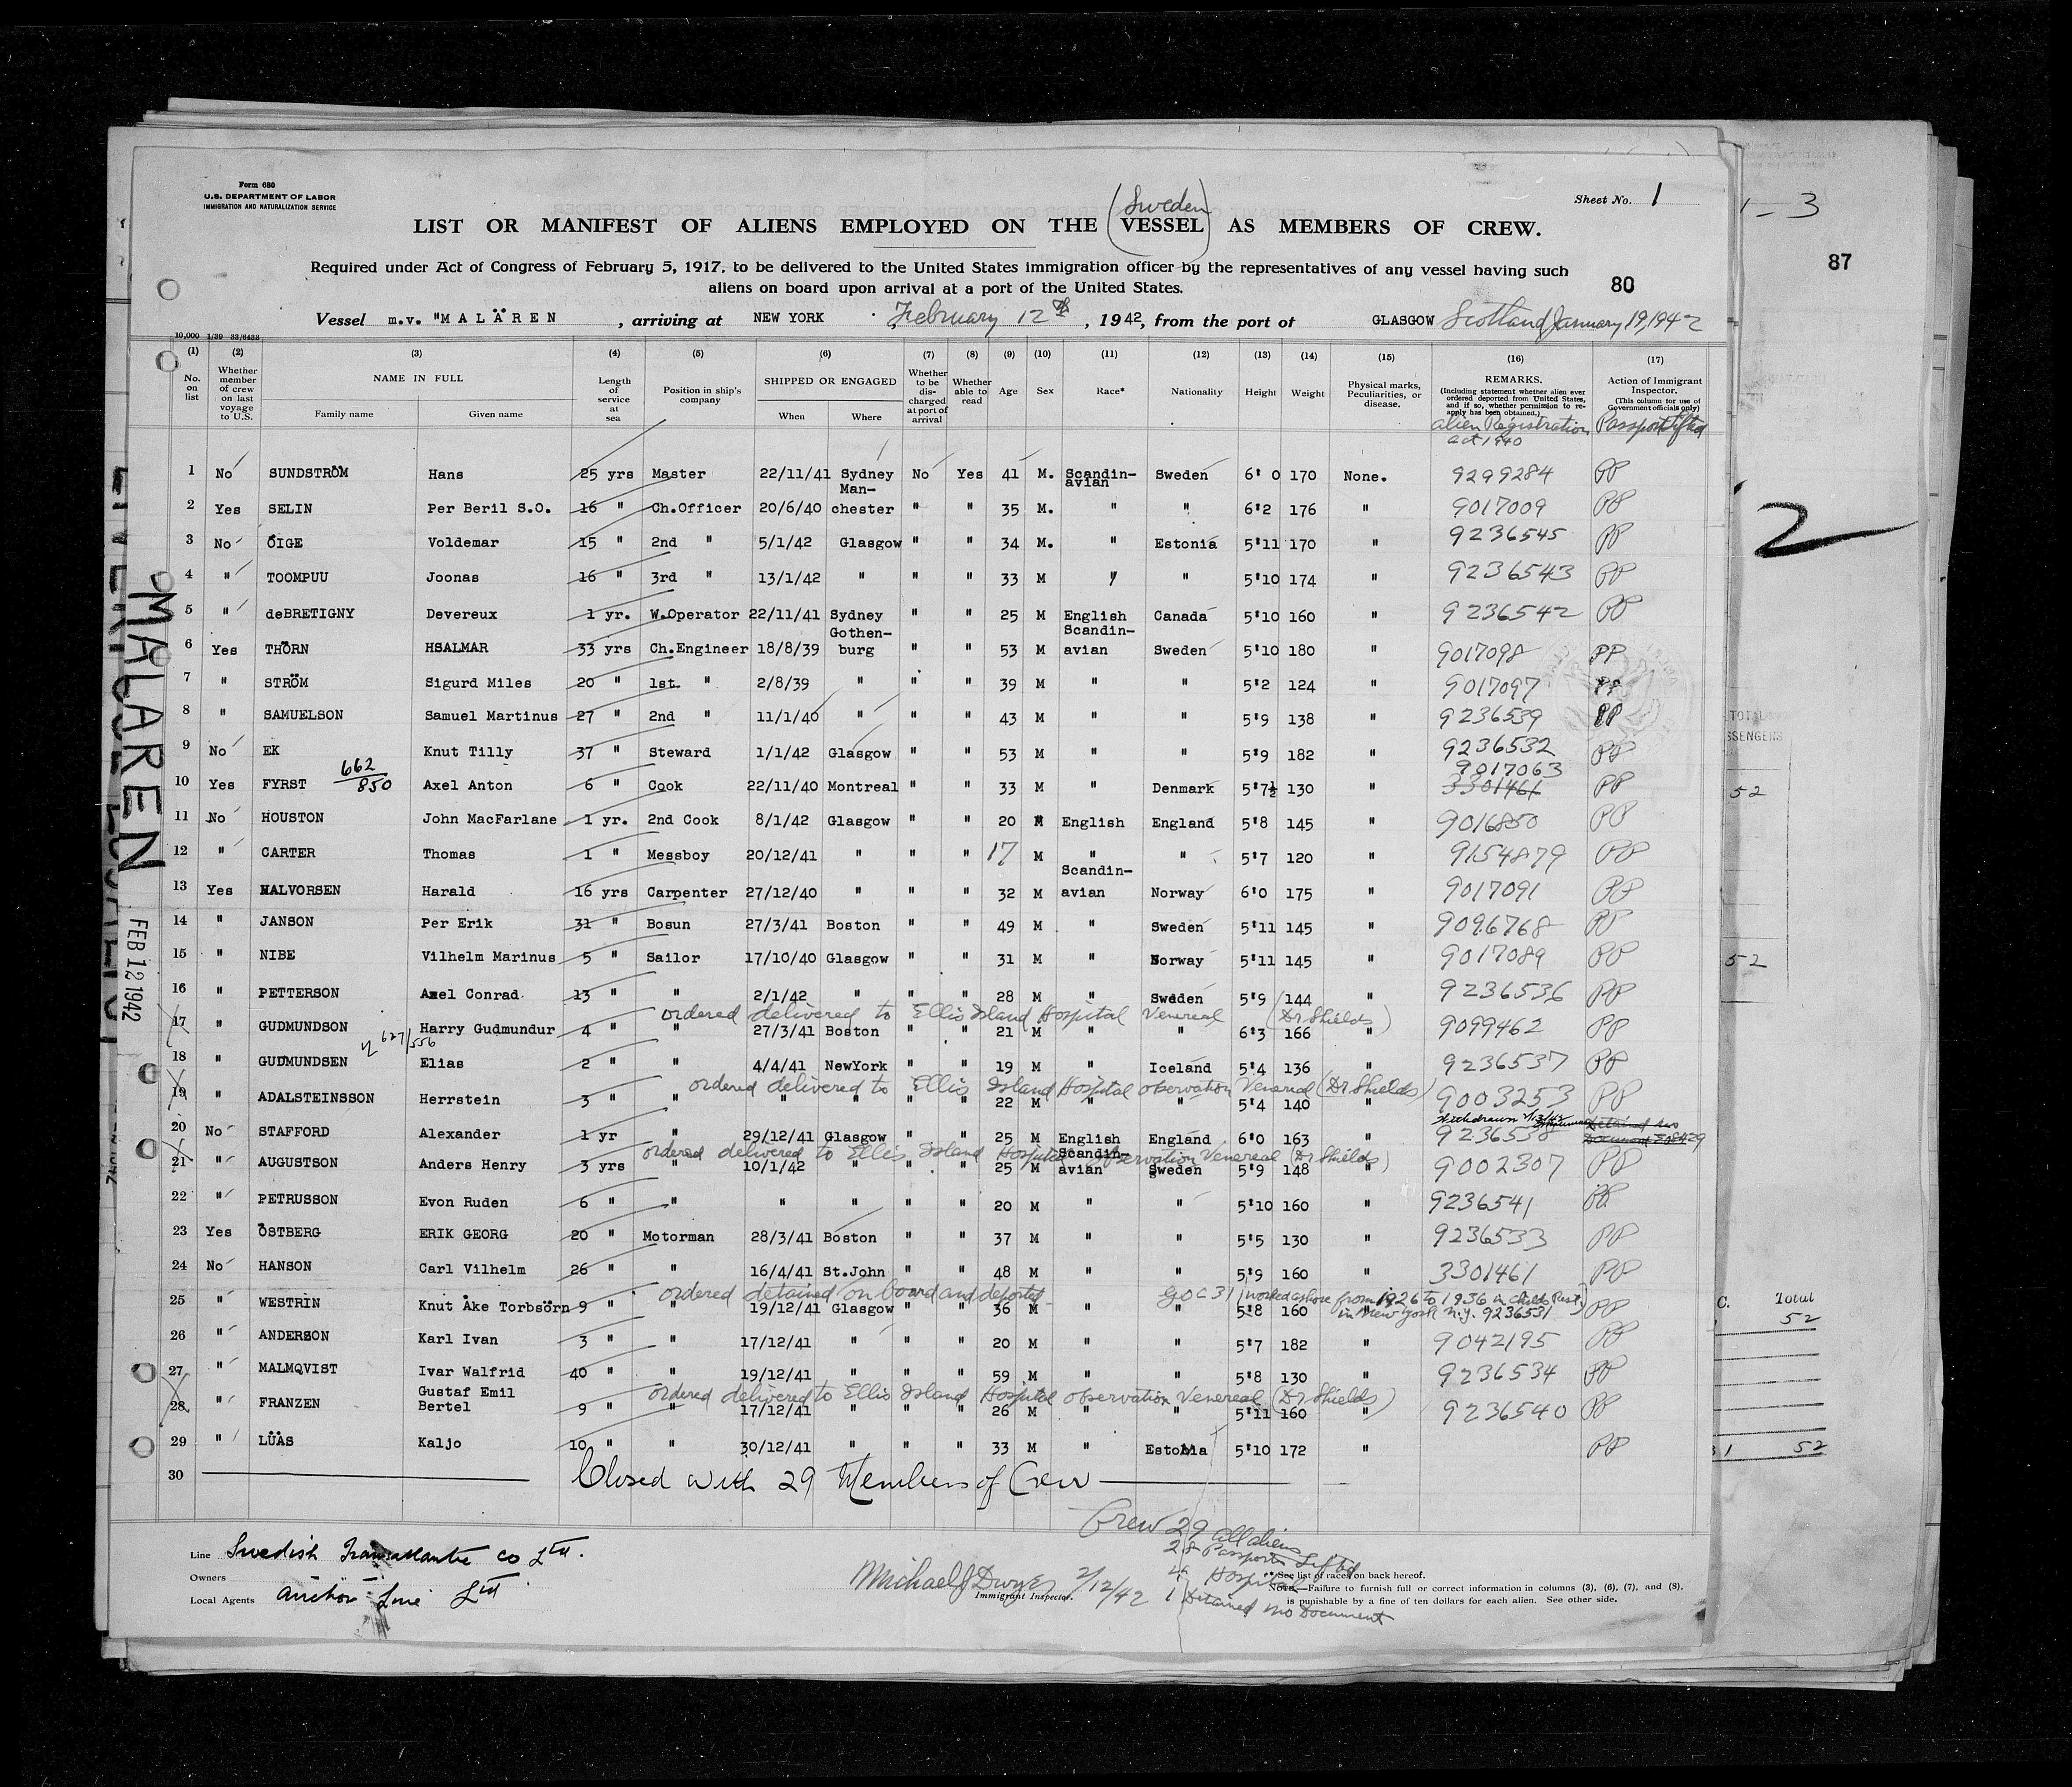 Form 680
U.S. DEPARTMENT OF LABOR
IMMIGRATION AND NATURALIZATION SERVICE
Sheet No. 1
(Sweden)
LIST OR MANIFEST OF ALIENS EMPLOYED ON THE VESSEL AS MEMBERS OF CREW.
Required under Act of Congress of February 5, 1917, to be delivered to the United States immigration officer by the representatives of any vessel having such
aliens on board upon arrival at a port of the United States.
80
Vessel m.v. "MALÄREN , arriving at NEW YORK February 12th , 1942, from the port of GLASGOW Scotland January 19, 1942
10,000 1/39 33/6433
(1) (2) (3) (4) (5) (6) (7) (8) (9) (10) (11) (12) (13) (14) (15) (16) (17)
No. on list Whether member of crew on last voyage to U.S. NAME IN FULL Family name Given name Length of service at sea Position in ship's company SHIPPED OR ENGAGED When Where Whether to be discharged at port of arrival Whether able to read Age Sex Race* Nationality Height Weight Physical marks, Peculiarities, or disease. REMARKS. (Including statement whether alien ever ordered deported from United States, and if so, whether permission to reapply has been obtained.) Action of Immigrant Inspector. (This column for use of Government officials only)
alien Registration act 1940 Passport lifted
1 No SUNDSTRÖM Hans 25 yrs Master 22/11/41 Sydney No Yes 41 M. Scandin-avian Sweden 6'0 170 None. 9299284 PP
2 Yes SELIN Per Beril S.O. 16 " Ch.Officer 20/6/40 Man-chester " " 35 M. " " 6'2 176 " 9017009 PP
3 No ÖIGE Voldemar 15 " 2nd " 5/1/42 Glasgow " " 34 M. " Estonia 5'11 170 " 9236545 PP
4 " TOOMPUU Joonas 16 " 3rd " 13/1/42 " " " 33 M " " 5'10 174 " 9236543 PP
5 " deBRETIGNY Devereux 1 yr. W.Operator 22/11/41 Sydney " " 25 M English Canada 5'10 160 " 9236542 PP
6 Yes THÖRN HSALMAR 33 yrs Ch.Engineer 18/8/39 Gothen-burg " " 53 M Scandin-avian Sweden 5'10 180 " 9017098 PP
7 " STRÖM Sigurd Miles 20 " 1st. " 2/8/39 " " " 39 M " " 5'2 124 " 9017097 PP
8 " SAMUELSON Samuel Martinus 27 " 2nd " 11/1/40 " " " 43 M " " 5'9 138 " 9236539 PP
9 No EK Knut Tilly 37 " Steward 1/1/42 Glasgow " " 53 M " " 5'9 182 " 9236532 PP
10 Yes FYRST 662/850 Axel Anton 6 " Cook 22/11/40 Montreal " " 33 M " Denmark 5'7½ 130 " 9017063 3301461 PP
11 No HOUSTON John MacFarlane 1 yr. 2nd Cook 8/1/42 Glasgow " " 20 M English England 5'8 145 " 9016850 PP
12 " CARTER Thomas 1 " Messboy 20/12/41 " " " 17 M " " 5'7 120 " 9154879 PP
13 Yes HALVORSEN Harald 16 yrs Carpenter 27/12/40 " " " 32 M Scandin-avian Norway 6'0 175 " 9017091 PP
14 " JANSON Per Erik 31 " Bosun 27/3/41 Boston " " 49 M " Sweden 5'11 145 " 9096768 PP
15 " NIBE Vilhelm Marinus 5 " Sailor 17/10/40 Glasgow " " 31 M " Norway 5'11 145 " 9017089 PP
16 " PETTERSON Axel Conrad 13 " " 2/1/42 " " " 28 M " Sweden 5'9 144 " 9236536 PP
ordered delivered to Ellis Island Hospital Venereal (Dr Shields)
17 " GUDMUNDSON Harry Gudmundur 4 " " 27/3/41 Boston " " 21 M " " 6'3 166 " 9099462 PP
627/556
18 " GUDMUNDSEN Elias 2 " " 4/4/41 NewYork " " 19 M " Iceland 5'4 136 " 9236537 PP
ordered delivered to Ellis Island Hospital observation Venereal (Dr Shields)
19 " ADALSTEINSSON Herrstein 3 " " " " " " 22 M " " 5'4 140 " 9003253 PP
20 No STAFFORD Alexander 1 yr " 29/12/41 Glasgow " " 25 M English England 6'0 163 " 9236538 Detained
ordered delivered to Ellis Island Hospital observation Venereal (Dr Shields)
21 " AUGUSTSON Anders Henry 3 yrs " 10/1/42 " " " 25 M Scandin-avian Sweden 5'9 148 " 9002307 PP
22 " PETRUSSON Evon Ruden 6 " " " " " " 20 M " " 5'10 160 " 9236541 PP
23 Yes ÖSTBERG ERIK GEORG 20 " Motorman 28/3/41 Boston " " 37 M " " 5'5 130 " 9236533 PP
24 No HANSON Carl Vilhelm 26 " " 16/4/41 St.John " " 48 M " " 5'9 160 " 3301461 PP
ordered detained on board and deported worked ashore from 1926 to 1936 in New York N.Y. 9236531
25 " WESTRIN Knut Åke Torbsörn 9 " " 19/12/41 Glasgow " " 36 M " " 5'8 160 " PP
26 " ANDERSON Karl Ivan 3 " " 17/12/41 " " " 20 M " " 5'7 182 " 9042195 PP
27 " MALMQVIST Ivar Walfrid 40 " " 19/12/41 " " " 59 M " " 5'8 130 " 9236534 PP
ordered delivered to Ellis Island Hospital observation Venereal (Dr Shields)
28 " FRANZEN Gustaf Emil Bertel 9 " " 17/12/41 " " " 26 M " " 5'11 160 " 9236540 PP
29 " LÜÄS Kaljo 10 " " 30/12/41 " " " 33 M " Estonia 5'10 172 " PP
30 Closed with 29 Members of Crew
Crew 29 all aliens
28 Passports Lifted
4 Hospital
1 Detained no Document
Line Swedish Transatlantic Co Ltd.
Owners
Local Agents Anchor Line Ltd
Michael J Dwyer 2/12/42
Immigrant Inspector.
* See list of races on back hereof.
NOTE.—Failure to furnish full or correct information in columns (3), (6), (7), and (8), is punishable by a fine of ten dollars for each alien. See other side.
MALAREN
FEB 12 1942
1 - 3
87
2
TOTAL
52
52
C. Total
52
31 52